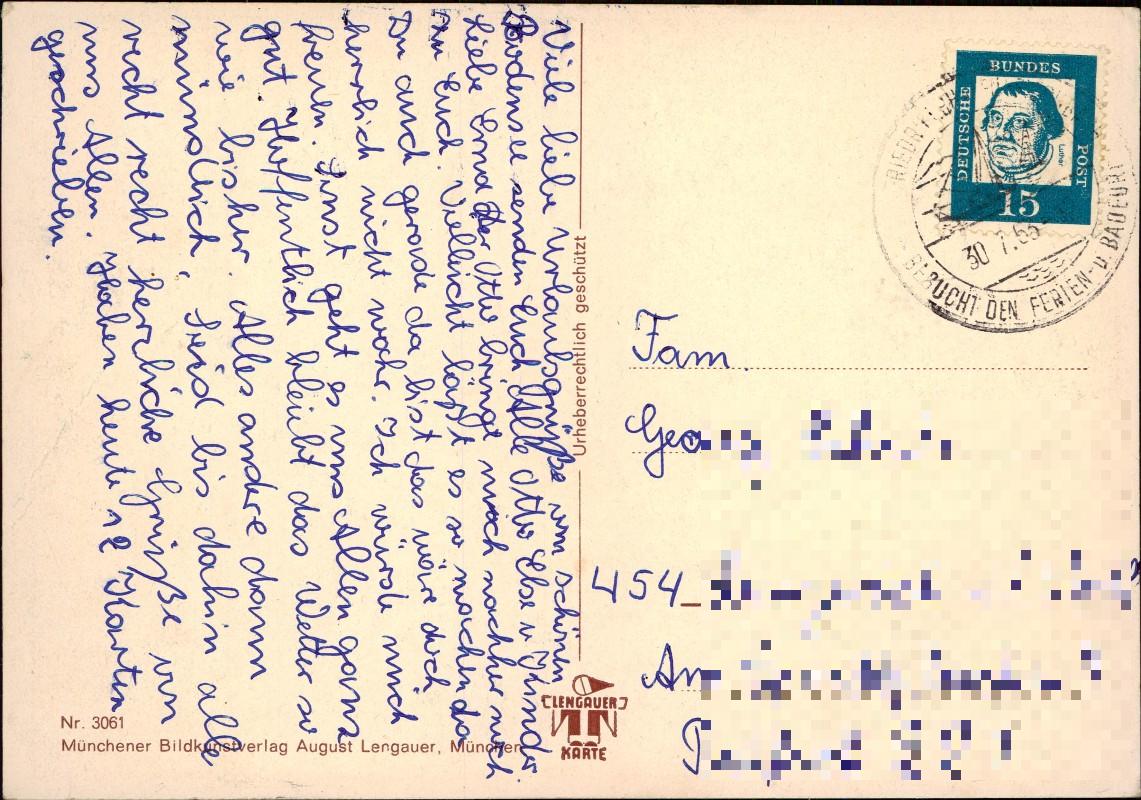 Viele liebe Urlaubsgrüße vom schönen
Bodensee senden Euch Alle Otto Else u Kinder.
Liebe Erna der Otto bringt mich nachher noch
zu Euch. Vielleicht läßt es so machen da
Du auch gerade da bist das wäre doch
herrlich nicht wahr. Ich würde mich
freuen. Sonst geht es uns Allen ganz
gut. Hoffentlich bleibt das Wetter so
wie bisher. Alles andere dann
mündlich. Seid bis dahin alle
recht recht herzliche Grüße von
uns Allen. Haben heute 12 Karten
geschrieben.
Urheberrechtlich geschützt
LENGAUER
KARTE
Nr. 3061
Münchener Bildkunstverlag August Lengauer, München
DEUTSCHE
BUNDES
POST
Luther
15
30 7.63
BESUCHT DEN FERIEN- U. BADEORT
Fam.
Georg
454
Am